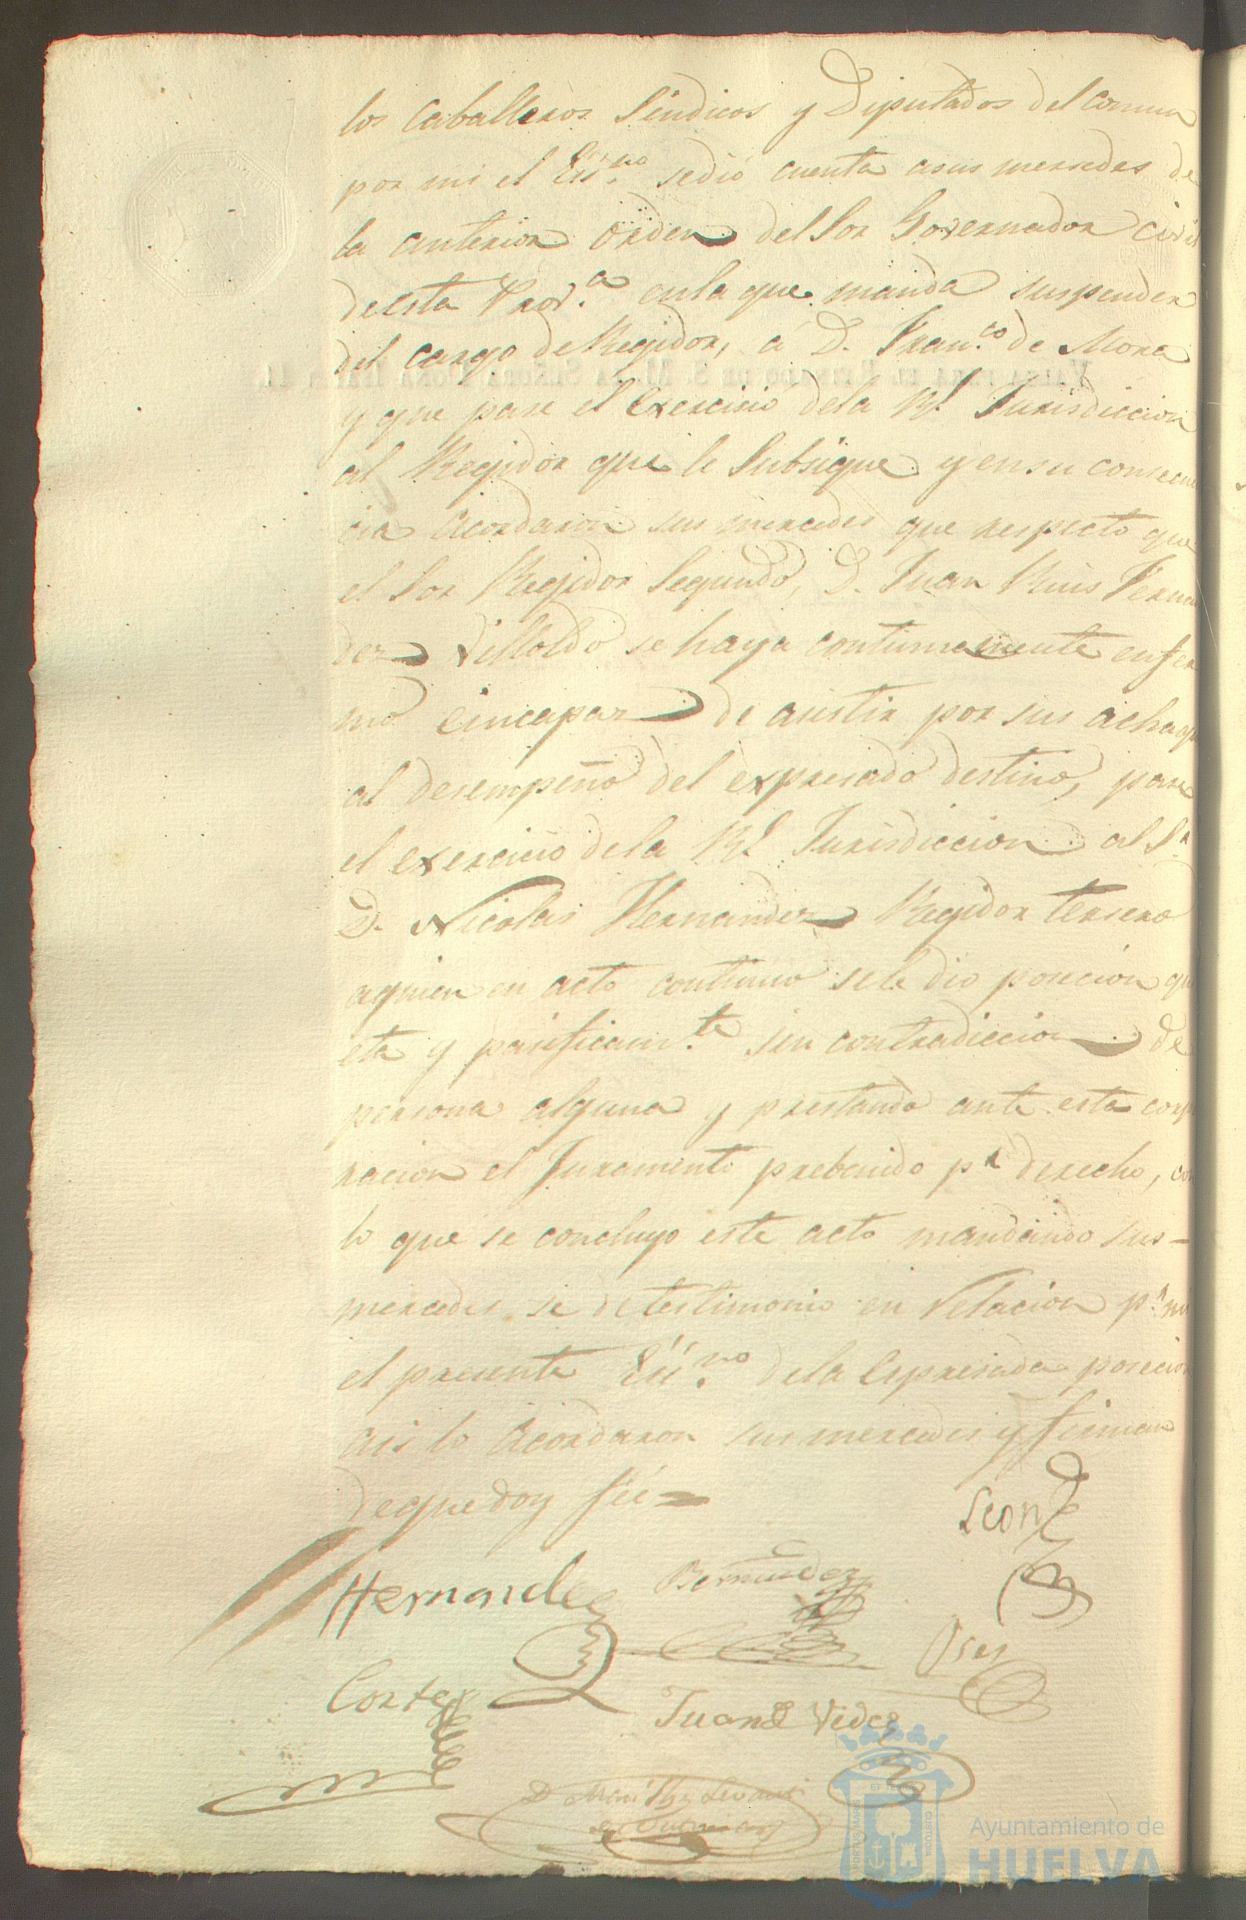 los caballeros Sindicos y Diputados del comun
por mi el Esno. sedió cuenta asus mersedes de
la anterior orden del Sor Governador civil
deesta Prova. enla que manda suspender
del cargo de Regidor, á D. Franco. de Mora
y que pase el exercisio dela Rl. Jurisdiccion
al Regidor que le Subsigue y en su consecuen
cia acordaron sus mercedes que respecto que
el Sor Regidor Segundo, D. Juan Ruis Fernan
dez Villoldo se haya continuamente enfer
mo é incapaz de asistir por sus achaques
al desempeño del expresado destino, pase
el exercicio dela Rl. Jurisdiccion al Sr.
D. Nicolas Hernandez Regidor tersero
aquien en acto continuo sele dio posecion qui
eta y pasificamte. sin contradiccion de
persona alguna y prestando ante esta corpo
racion el Juramento prebenido pr derecho, con
lo que se concluyo este acto mandando sus
mercedes se de testimonio en relacion pr. mi
el presente Esno. dela expresada posecion
asi lo acordaron sus mercedes y firman
deque doy feé =
Leon
Hernandez
Bermudez
Cortez
Juan Videz
VALGA PARA EL REINADO DE S. M. LA SEÑORA DOÑA ISABEL II.
Ayuntamiento de
HUELVA